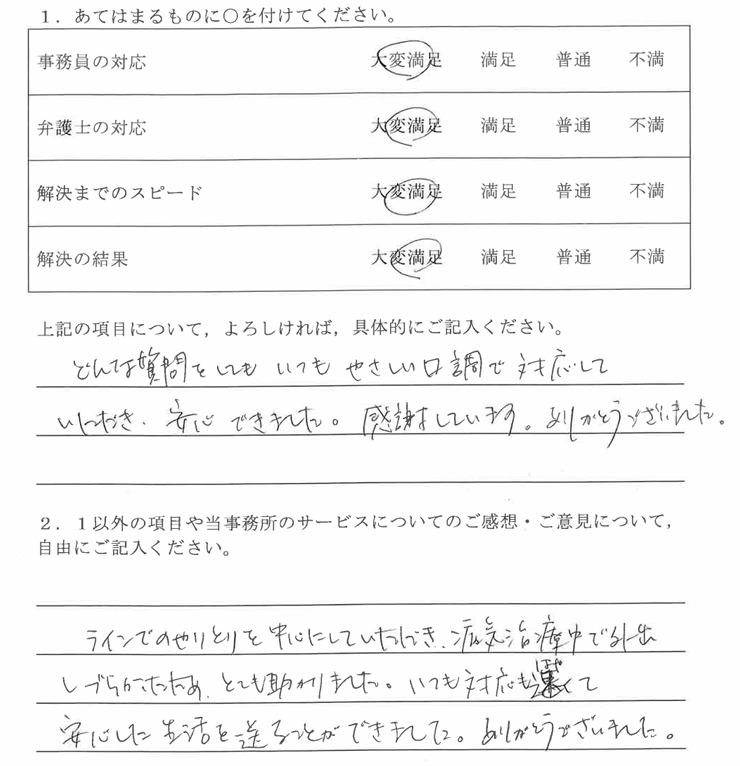 1．あてはまるものに○を付けてください。
事務員の対応 大変満足 満足 普通 不満
弁護士の対応 大変満足 満足 普通 不満
解決までのスピード 大変満足 満足 普通 不満
解決の結果 大変満足 満足 普通 不満
上記の項目について，よろしければ，具体的にご記入ください。
どんな質問をしても いつも やさしい口調で 対応して
いただき、安心 できました。感謝しています。ありがとうございました。
2．1以外の項目や当事務所のサービスについてのご感想・ご意見について，
自由にご記入ください。
ラインでのやりとりを中心にしていただき、病気治療中で外出
しづらかったため、とても助かりました。いつも対応も速くて
はや
安心した生活を送ることができました。ありがとうございました。